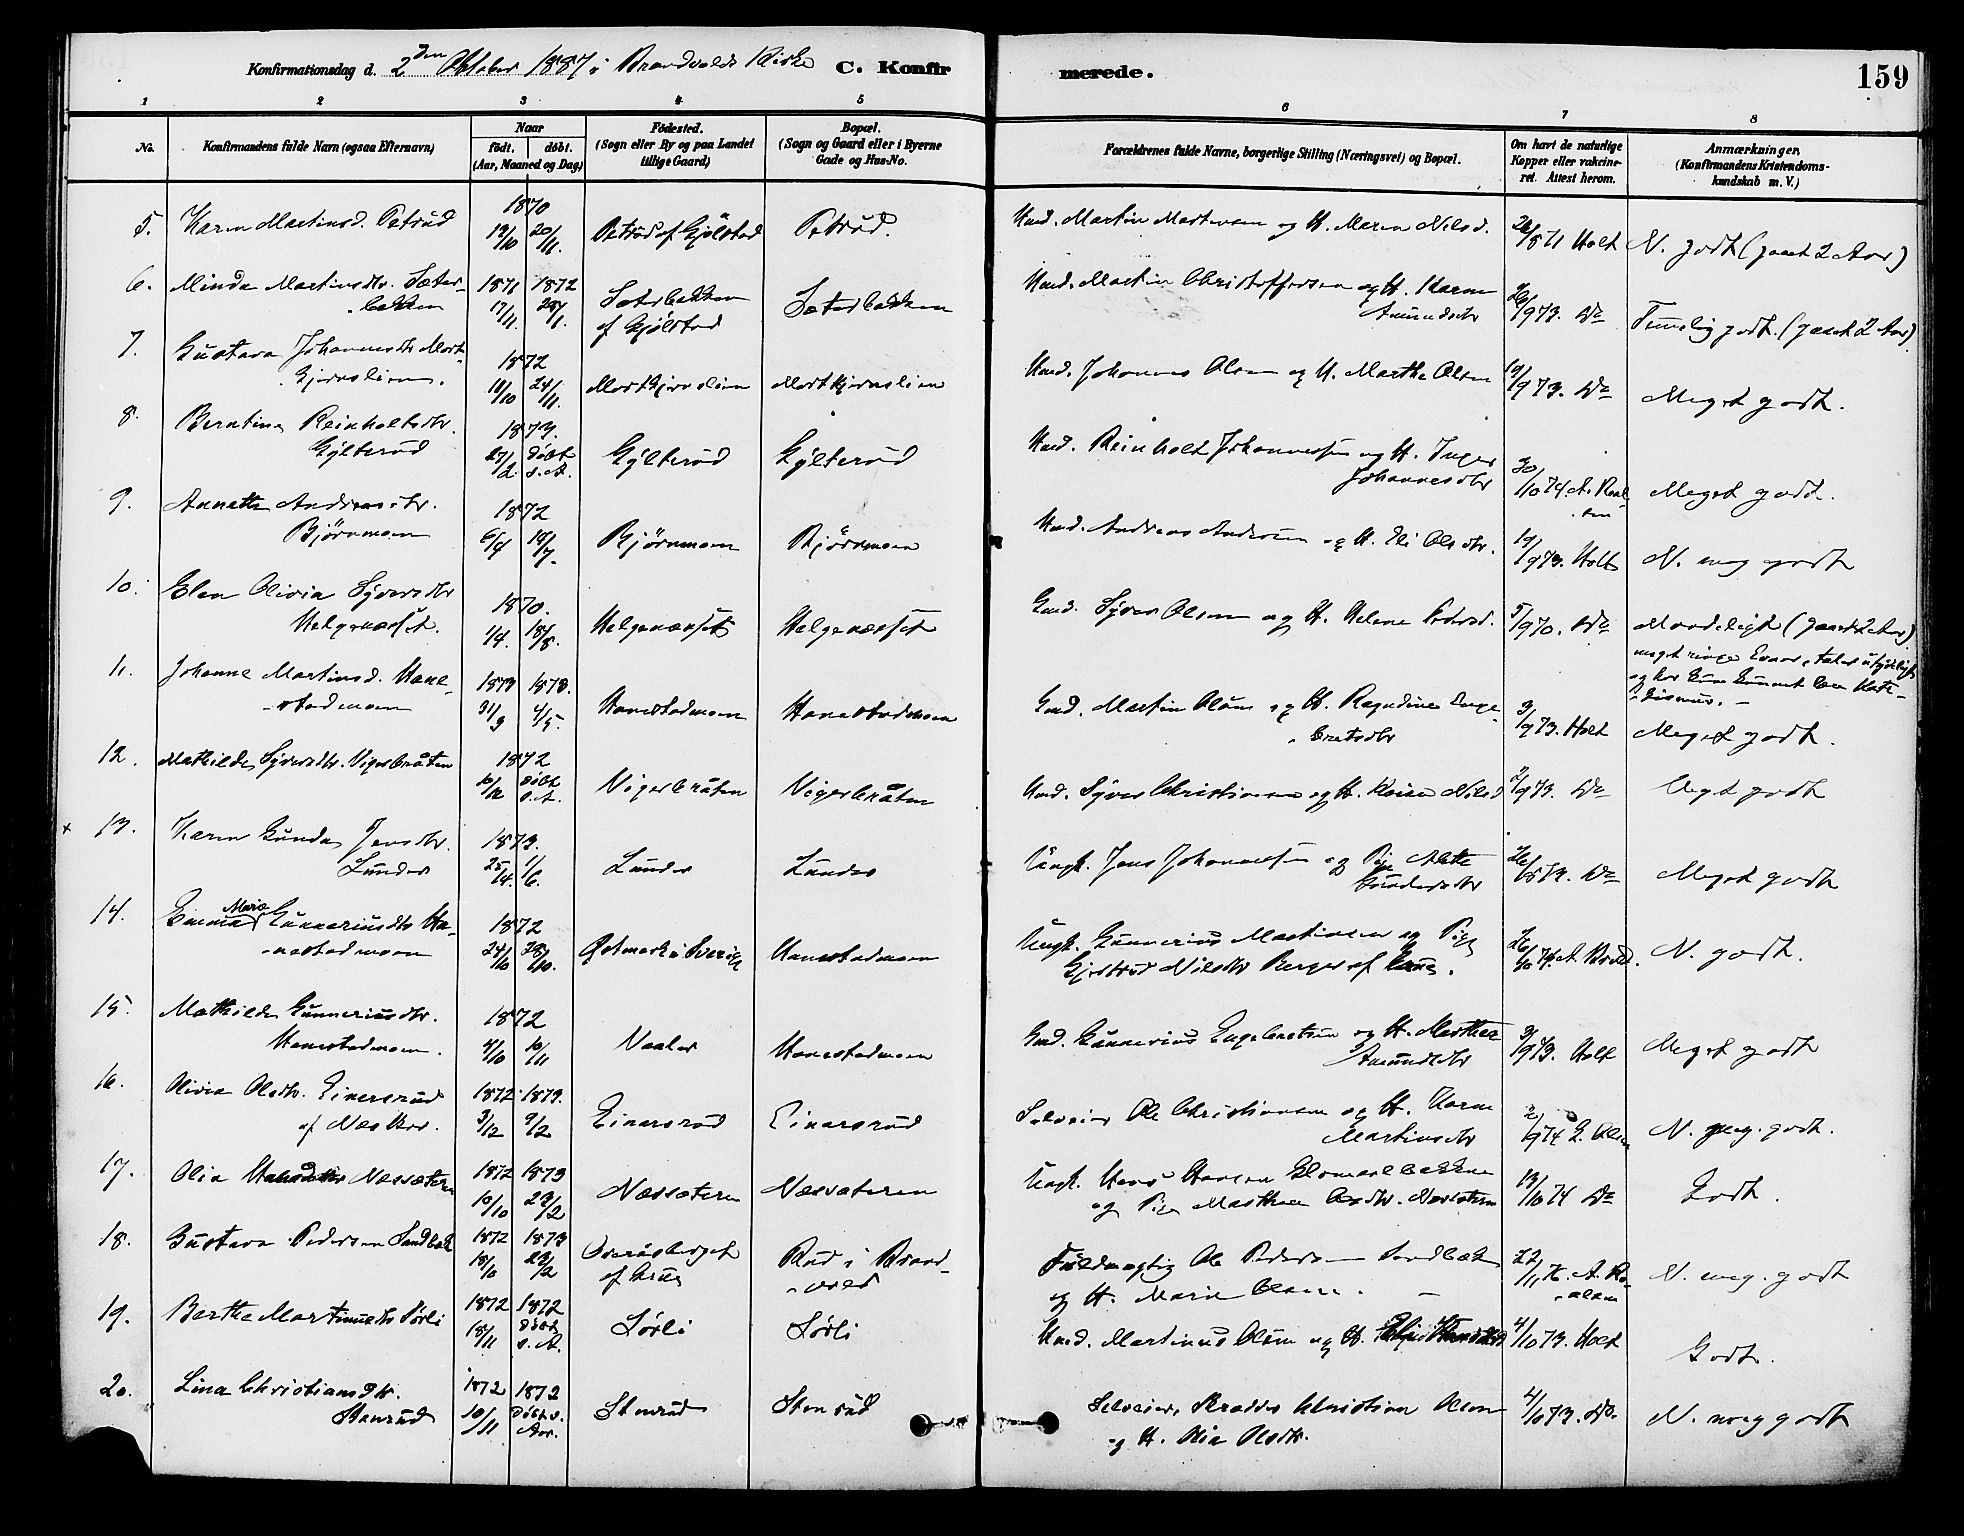 Konfirmationsdag d. 2den Oktober 1887 i Brandvolds Kirke C. Konfirmerede. 159
1 2 3 4 5 6 7 8
No. Konfirmandens fulde Navn (ogsaa Efternavn) Naar födt. döbt. (Aar, Maaned og Dag) Födested. (Sogn eller By og paa Landet tillige Gaard) Bopæl. (Sogn og Gaard eller i Byerne Gade og Hus-No. Forældrenes fulde Navne, borgerlige Stilling (Næringsvei) og Bopæl. Om havt de naturlige Kopper eller vakcineret. Attest herom. Anmærkninger, (Konfirmandens Kristendomskundskab m. V.)
5. Karen Martinsd. Petrud 1870 12/10 20/11 Petrud af Gjölstad Petrud. Hmd. Martin Mortensen og H. Maren Nilsd. Holt N. godt (gaaet 2 Aar)
6. Minda Martinsdtr. Sæterbakken 1871 17/11 1872 28/1 Sæterbakken af Gjölstad Sæterbakken Hmd. Martin Christoffersen og H. Karen Amundsdtr 26/9 73. Do Temmelig godt. (gaaet 2 Aar)
7. Gustava Johannesdtr Mortkjernslien. 1872 11/10 24/11 Mortkjernslien Mortkjernslien Hmd. Johannes Olsen og H. Marthe Olsen 19/9 73. Do Meget godt.
8. Berntine Reinholtsdtr. Gylterud 1873. 27/2 döbt s. A. Gylterud Gylterud Hmd. Reinholt Johannessen og H. Inger Johannesdtr 30/10 74. Meget godt.
9. Annette Andreasdtr. Björnmoen 1872 6/4 Björnmoen Björnmoen Hmd. Andreas Andersen og H. Eli Olsdtr. 19/9 73. Holt N. meg godt
10. Elen Olivia Syversdtr Helgenæsset. 1870. 1/4. 18/8. Helgenæsset Helgenæsset Gmd. Syver Olsen og H. Helene Pedersd. 5/9 70. Do Maadeligt (gaaet 2 Aar) meget ringe Evner, taler utydeligt og har kun kunnet lære Katekismus.
11. Johanne Martinsd. Hanestadmoen 1873 31/3 1873. 4/5. Hanestadmoen Hanestadmoen Gmd. Martin Olsen og H. Ragndine Engebretsdtr 3/9 73. Holt Meget godt.
12. Mathilde Syversdtr. Vigerbråten 1872 10/12 döbt s. A. Vigerbråten Vigerbråten Hmd. Syver Christiansen og H. Nilsd 2/9 73. Do Meget godt
x 13. Karen Gunda Jensdtr. Lunder 1873. 25/4. 1/6. Lunder Lunder Ungk. Jens Johannessen og Pige Gundersdtr Do Meget godt
14. Emma Marie Gunneriusdtr Hanestadmoen 1872 24/10 28/10. Östmark i Sverige Hanestadmoen Ungk. Gunnerius Martinsen og Pige Gjertrud Nilsdtr Berger af Grue. N. godt.
15. Mathilde Gunneriusdtr. Hanestadmoen. 1872 4/10 10/11 Vaaler Hanestadmoen Gmd. Gunnerius Engebretsen og H. Marthea Amundsdtr 3/9 73. Holt Meget godt
16. Olivia Olsdtr. Einersrud af Næs 1872. 3/12 1873. 9/2 Einersrud Einersrud Selveier Ole Christiansen og H. Karen Martinsdtr N. meg. godt.
17. Olia Næssæteren 1872 10/10 1873 23/2 Næssæteren Næssæteren Ungk. Hans Hansen og Pige Marthea Næssæteren 19/10 74 Do Godt.
18. Gustava Pedersen Sandbæk 1872 18/10 1873 23/2 af Grue Rud i Brandvold Fuldmægtig Ole Pedersen Sandbæk og H. Marie Olsen. N. meg. godt
19. Berthe Martinusdtr Sörli 1872 18/11 1872 döbt s. A. Sörli Sörli Hmd. Martinus Olsen og H. 4/10 73. Holt Godt.
20. Lina Christiansdtr. Stenrud 1872 10/11 1872 Döbt s. Aar. Stenrud Stenrud Selveier, Skrædder Christian Olsen og H. Olia Olsdtr. 4/10 73. Do. N. meg godt